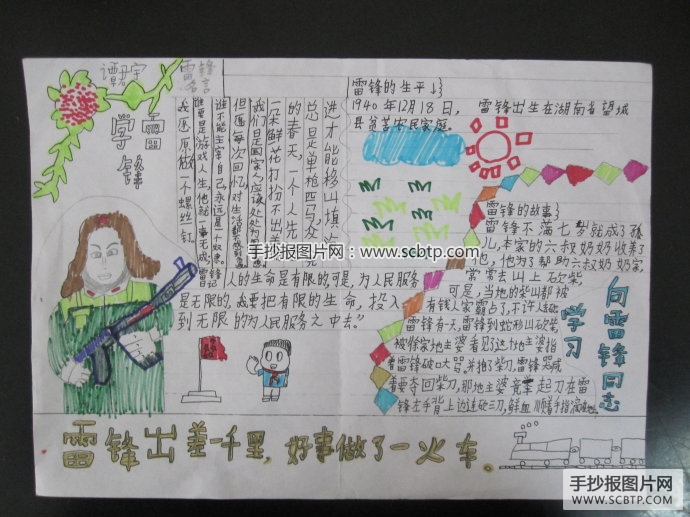 谭君宇
学雷锋
雷锋名言
谁才能移山填海
总是单枪匹马众人先
的春天，一个人先
一朵鲜花打扮不出美
但愿每次回忆，对生活都
谁不能主宰自己，永远是一
谁要是游戏人生，他就一事无成，
我愿做一个螺丝钉。
人的生命是有限的可是，为人民服务
是无限的，我要把有限的生命，投入
到无限的为人民服务之中去。”
雷锋的生平
1940年12月18日，雷锋出生在湖南省望城
县贫苦农民家庭。
雷锋的故事
雷锋不满七岁就成了孤
儿，本家的六叔奶奶收养了
他。他为了帮助六叔奶奶家，
常常去山上砍柴，
可是，当地的柴山都被
有钱人家霸占了，不许人砍。
雷锋有一天，雷锋到蛇形山砍柴，
被徐家地主婆看见了这个地主婆指
着雷锋破口大骂，并抢了柴刀，雷锋哭喊
着要夺回柴刀，那地主婆竟拿起刀在雷
锋左手背上边连砍三刀，鲜血顺着手指滴
向雷锋同志
学习
雷锋出差一千里，好事做了一火车。
手抄报图片网：www.scbtp.com
手抄报图片网
WWW.SCBTP.COM